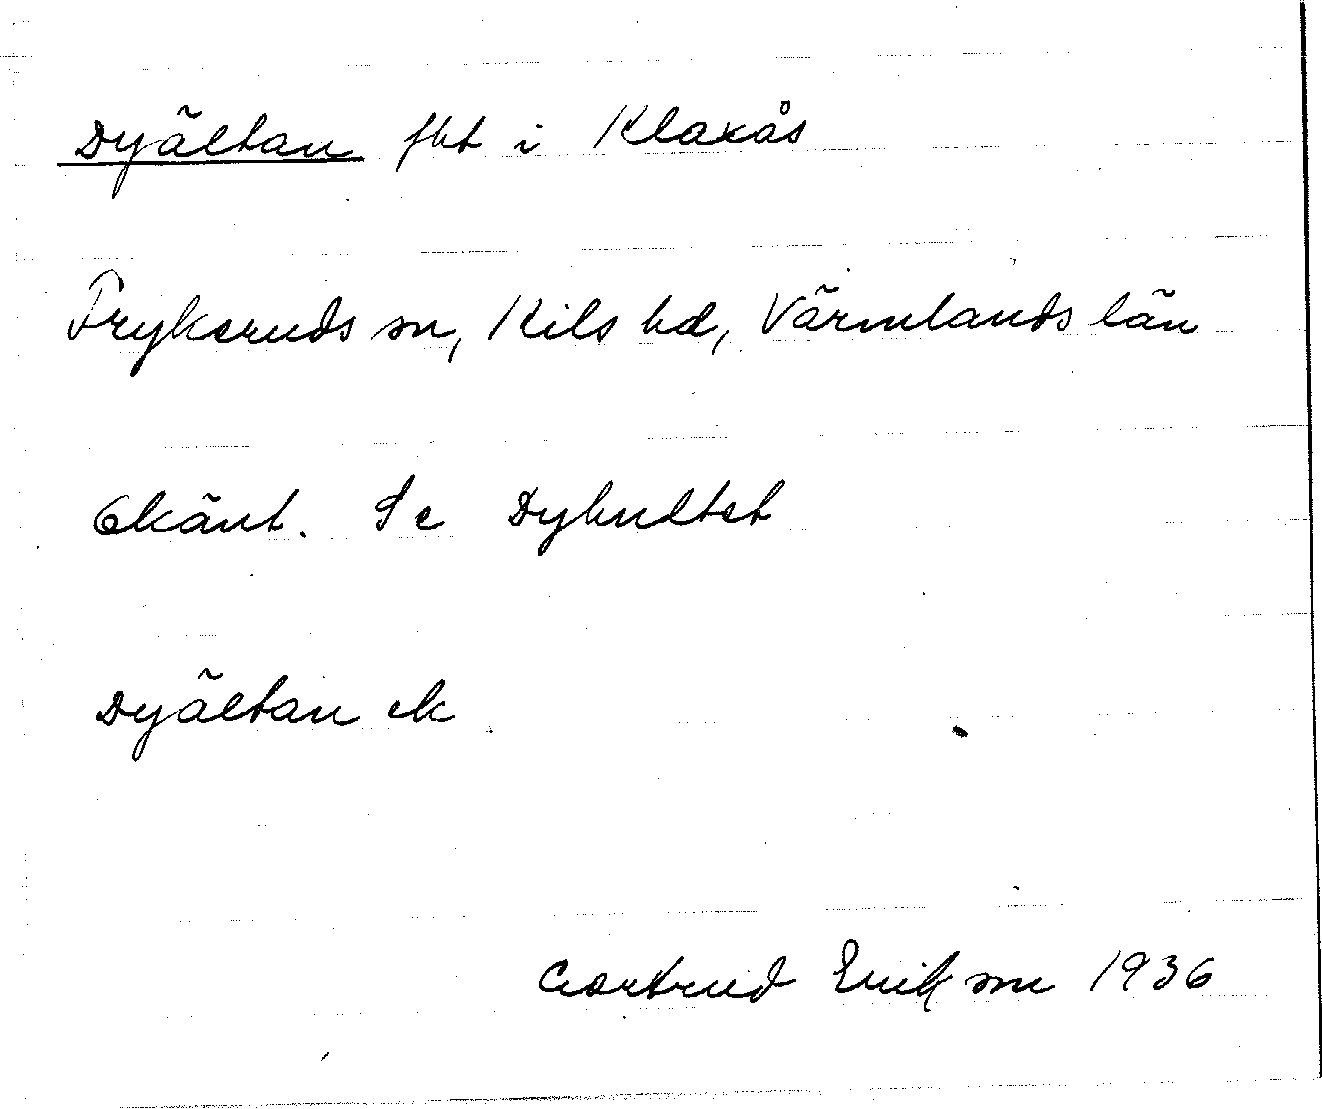 Dyältan fbt i Klaxås
Frykeruds sn, Kils hd, Värmlands län
Okänt. Se Dyhultet
Dyältan ek
Gertrud Erikson 1936